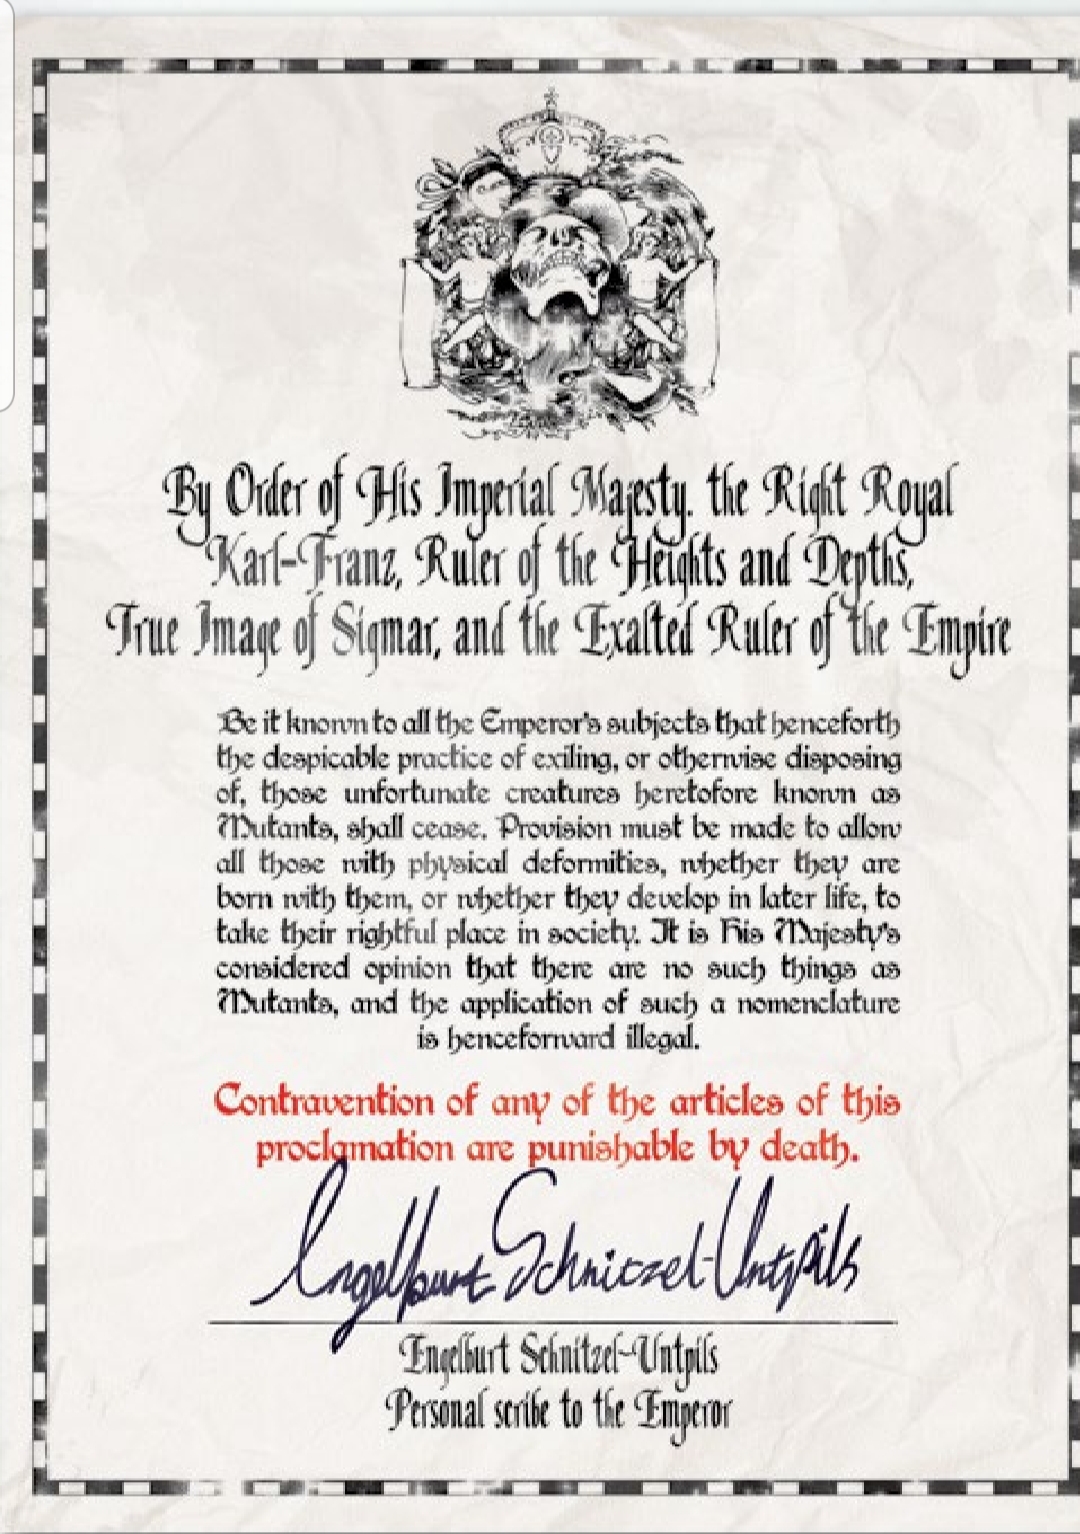 By Order of His Imperial Majesty. the Right Royal
Karl-Franz, Ruler of the Heights and Depths,
True Image of Sigmar, and the Exalted Ruler of the Empire
Be it known to all the Emperor's subjects that henceforth
the despicable practice of exiling, or otherwise disposing
of, those unfortunate creatures heretofore known as
Mutants, shall cease. Provision must be made to allow
all those with physical deformities, whether they are
born with them, or whether they develop in later life, to
take their rightful place in society. It is His Majesty's
considered opinion that there are no such things as
Mutants, and the application of such a nomenclature
is henceforward illegal.
Contravention of any of the articles of this
proclamation are punishable by death.
Engelburt Schnitzel-Untpils
Engelburt Schnitzel-Untpils
Personal scribe to the Emperor